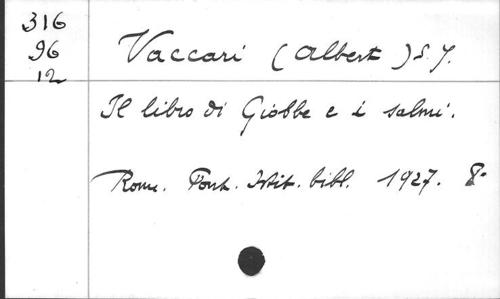 316
96
12
Vaccari (Albert) S.J.
Il libro di Giobbe e i salmi.
Rome. Pont. Istit. bibl. 1927. 8°